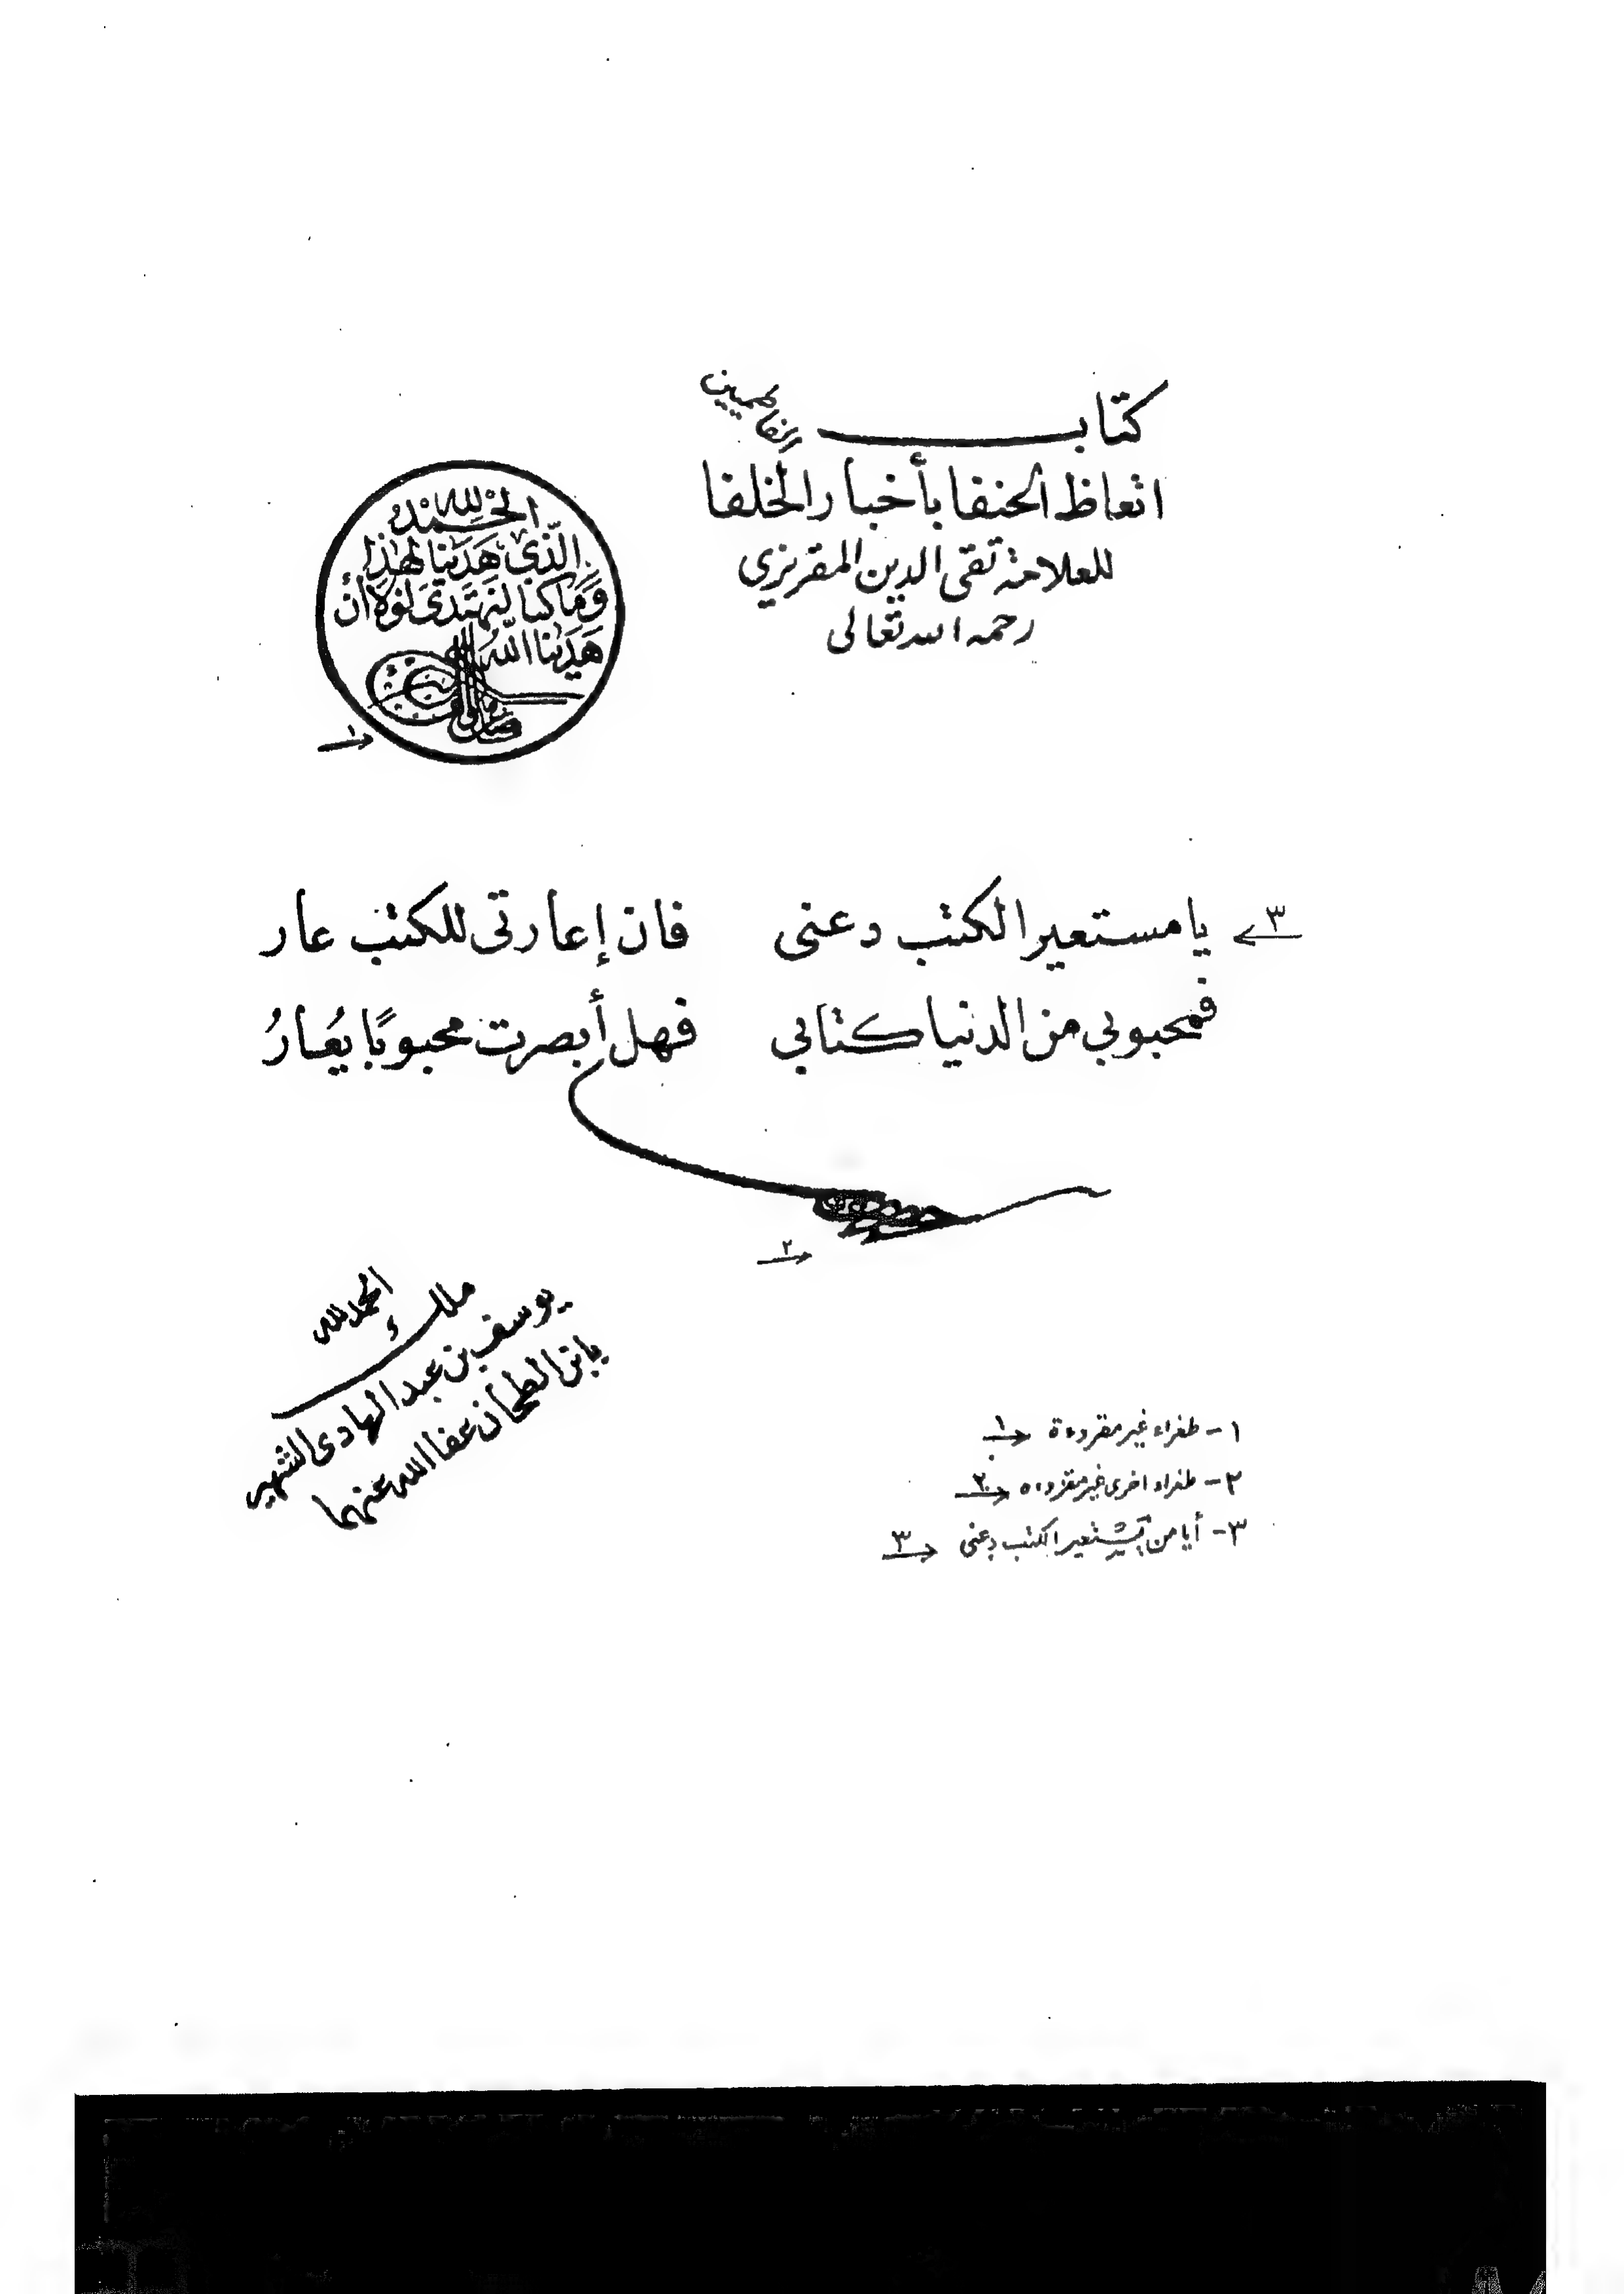 كتاب
اتعاظ الحنفا بأخبار الخلفا
الفاطميين
للعلامة تقى الدين المقريزي
رحمه الله تعالى
الحَمْدُ لِلّه
الَّذِى هَدَىٰنَا لِهَٰذَا
وَمَا كُنَّا لِنَهْتَدِىَ لَوْلَا أَنْ
هَدَىٰنَا اللّهُ
١
٣
يا مستعير الكتب دعنى فان إعارتى للكتب عار
فمحبوبي من الدنيا كتابي فهل أبصرت محبوبًا يُعارُ
٢
الحمد لله
ملك
يوسف بن عبد الهادى الشهير
بابن الطحان عفا الله عنهما
١- طغراء غير مقروءة ١
٢- طغراء اخرى غير مقروءه ٢
٣- أيا من يستعير الكتب دعنى ٣